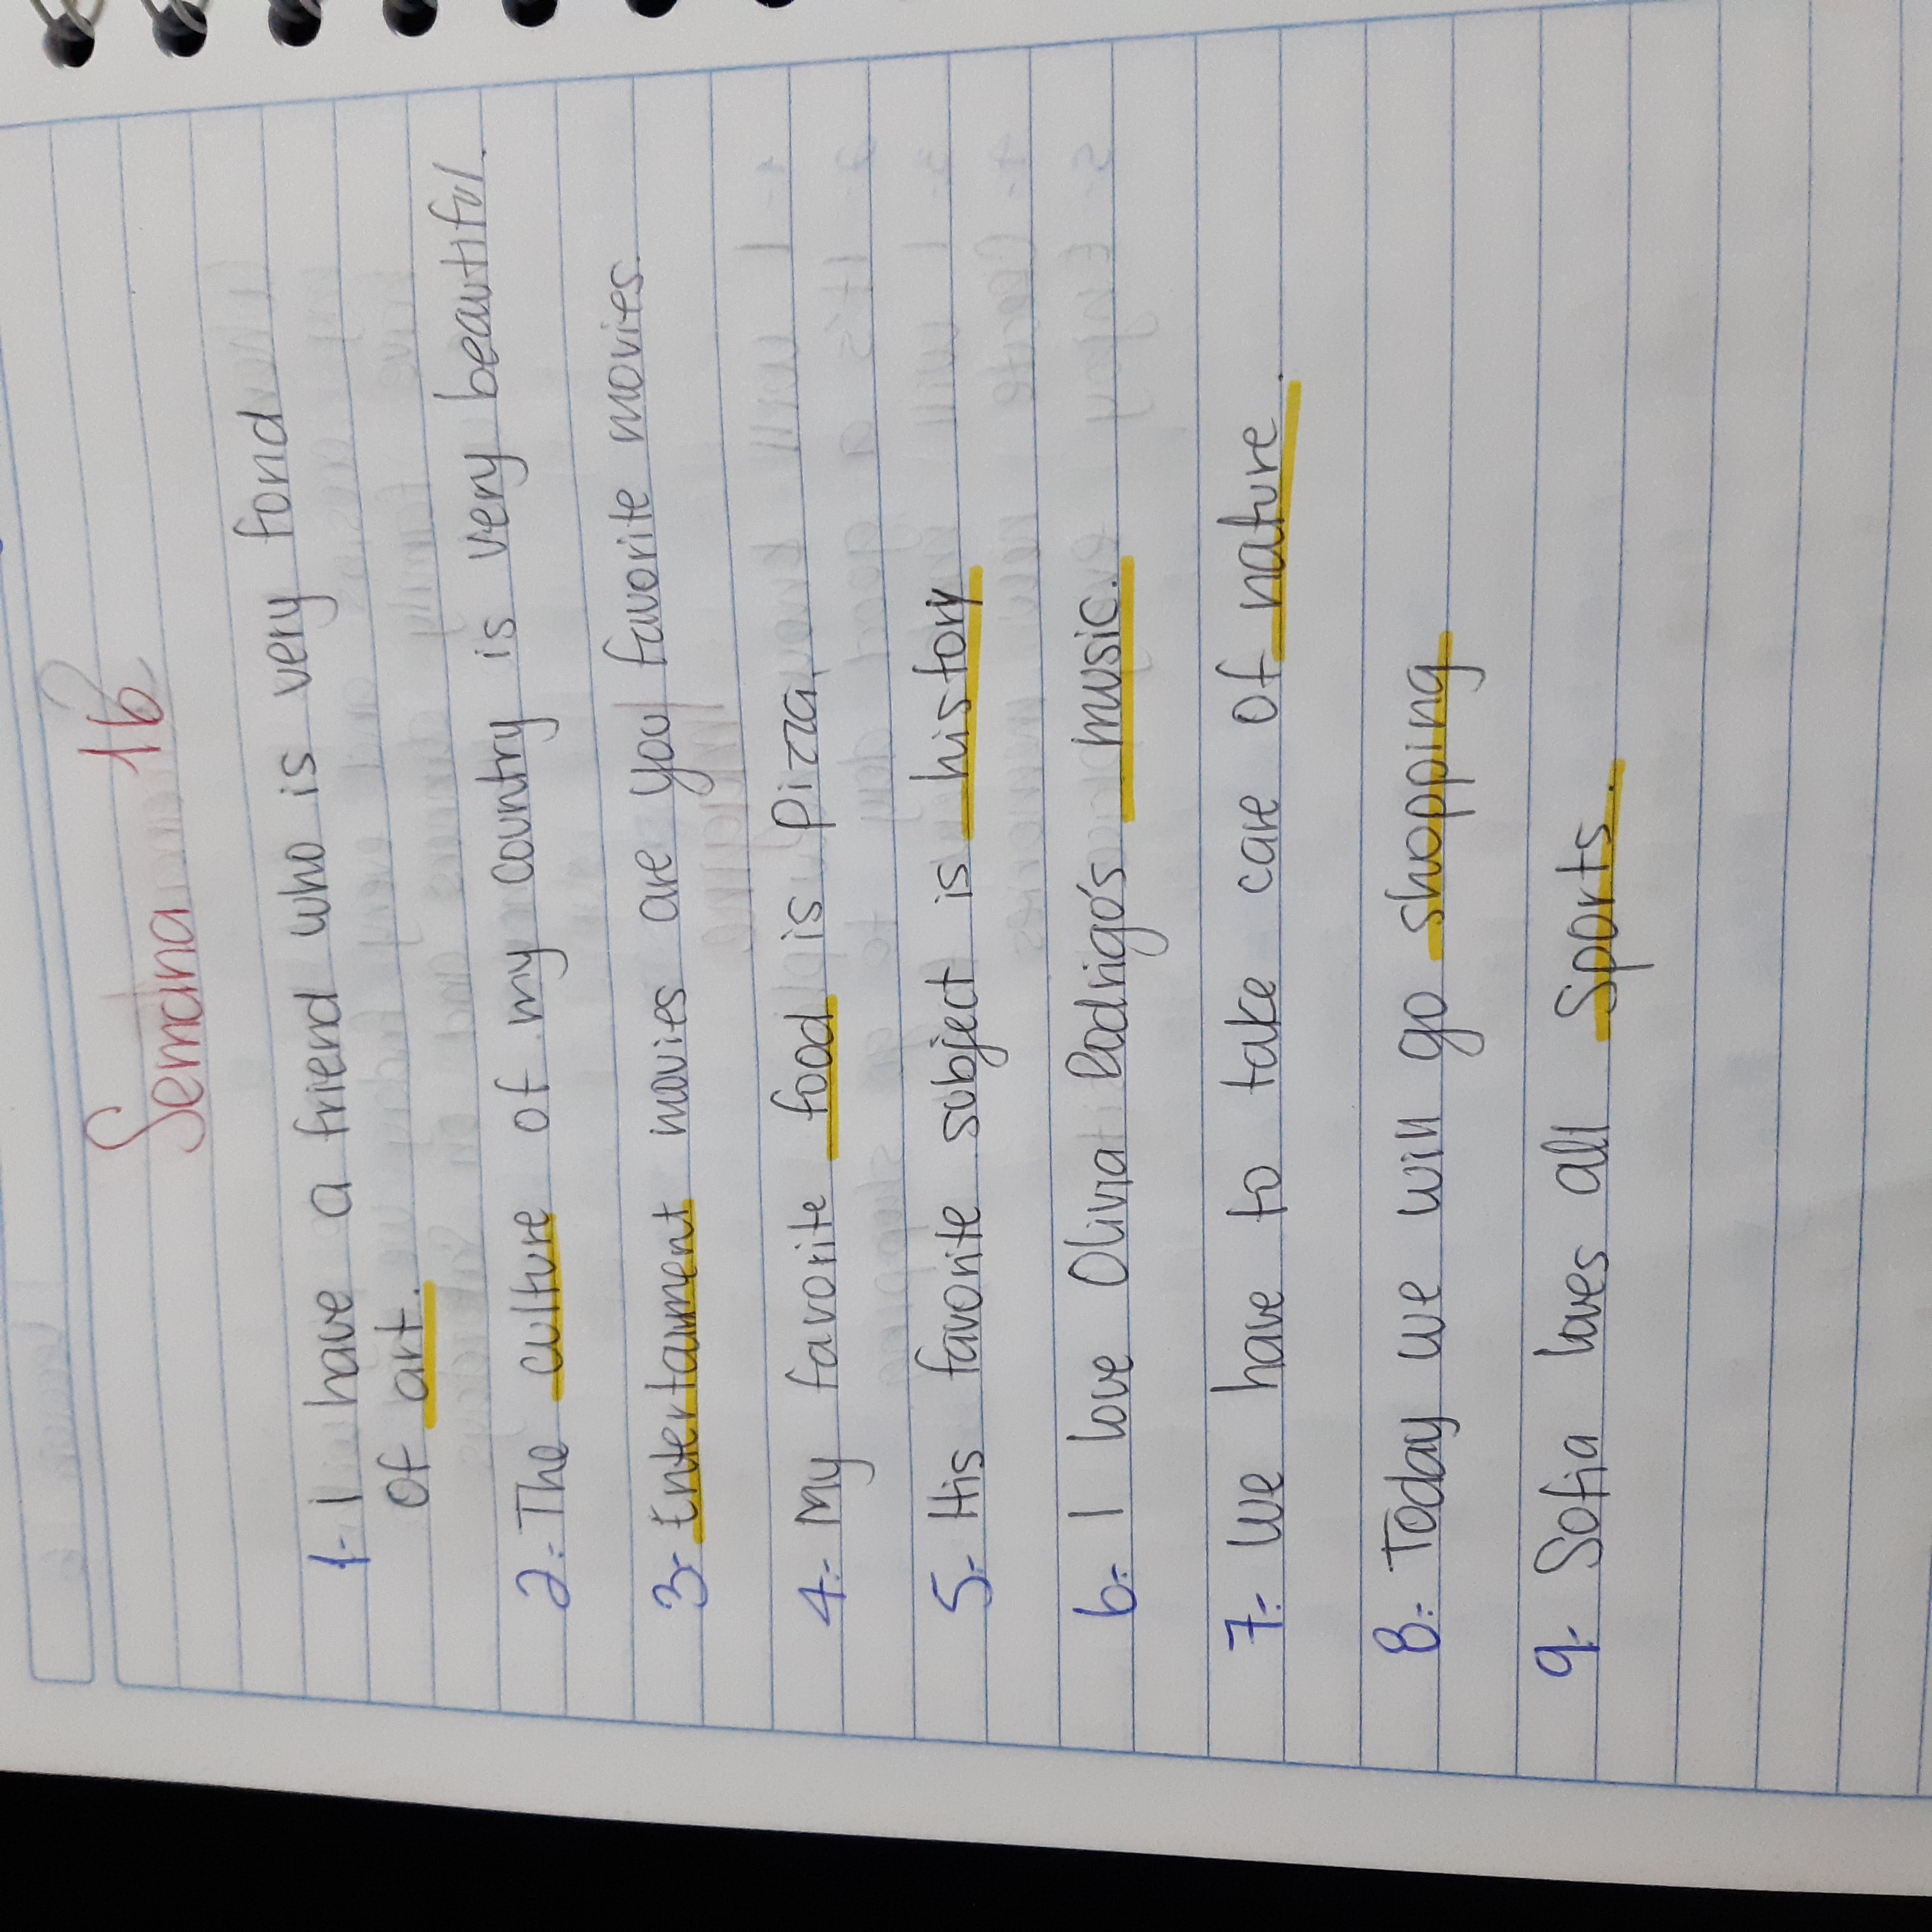 Semana 16
1.- I have a friend who is very fond
of art.
2.- The culture of my country is very beautiful.
3.- Entertaiment movies are you favorite movies.
4.- My favorite food is Pizza.
5.- His favorite subject is history
6.- I love Olivia Rodrigo's music.
7.- We have to take care of nature.
8.- Today we will go shopping
9.- Sofia loves all Sports.